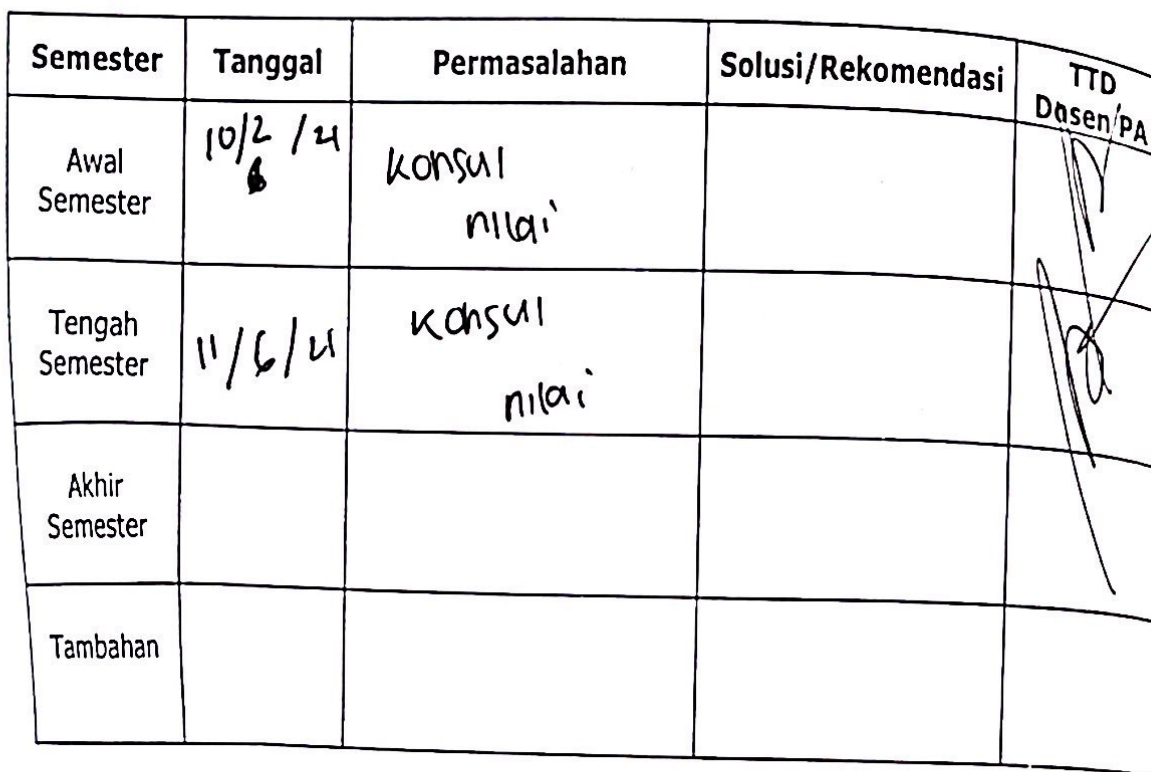 Semester Tanggal Permasalahan Solusi/Rekomendasi TTD
Dosen/PA
Awal
Semester
10/2 /21
Konsul
nilai
Tengah
Semester
11/6/21
Konsul
nilai
Akhir
Semester
Tambahan